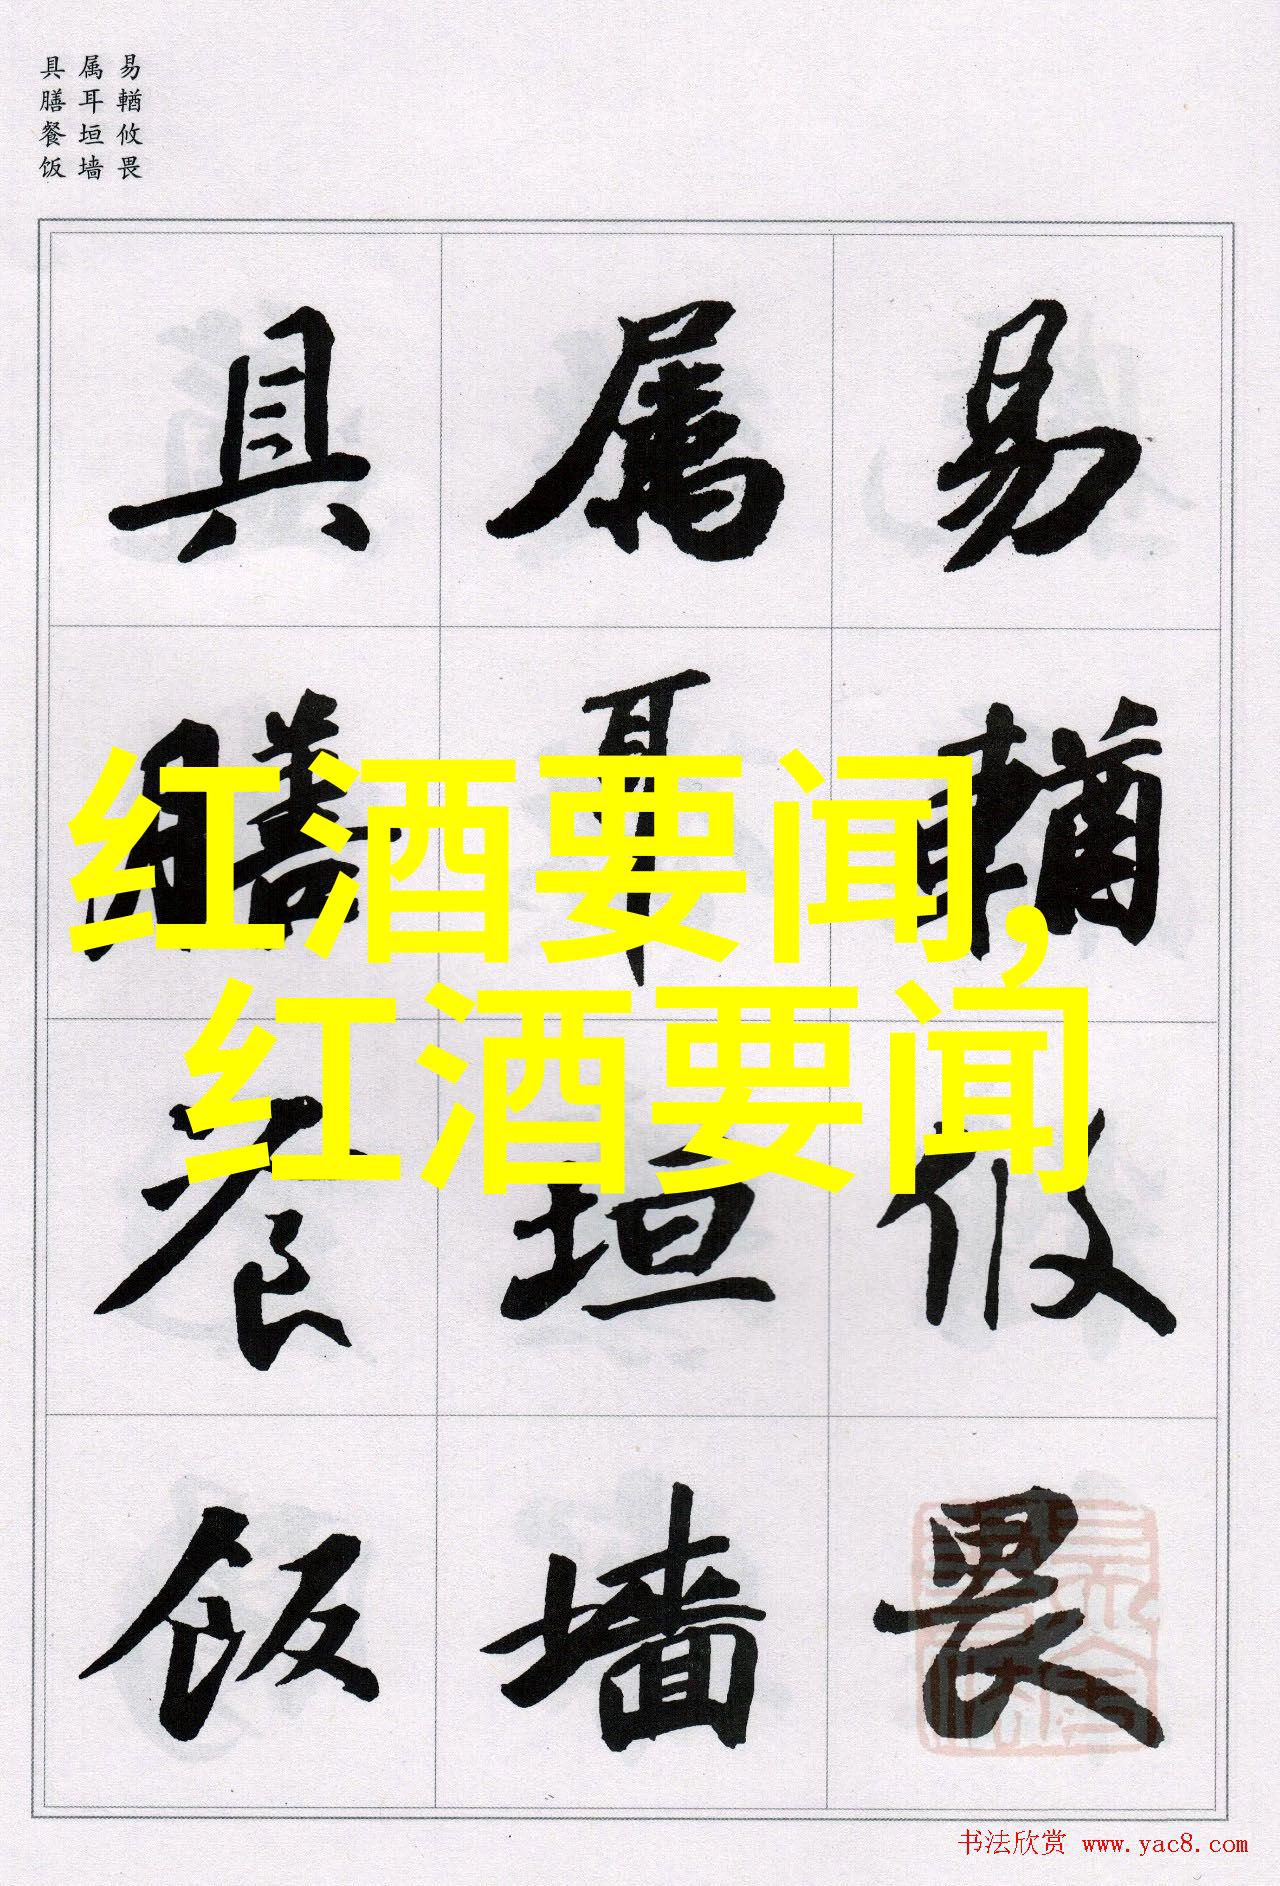 易輶攸畏
属耳垣墙
具膳餐饭
易輶攸畏
属耳垣墙
具膳餐饭
红酒要闻,
红酒要闻
书法欣赏 www.yac8.com